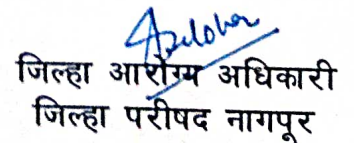 जिल्हा आरोग्य अधिकारी
जिल्हा परीषद नागपूर